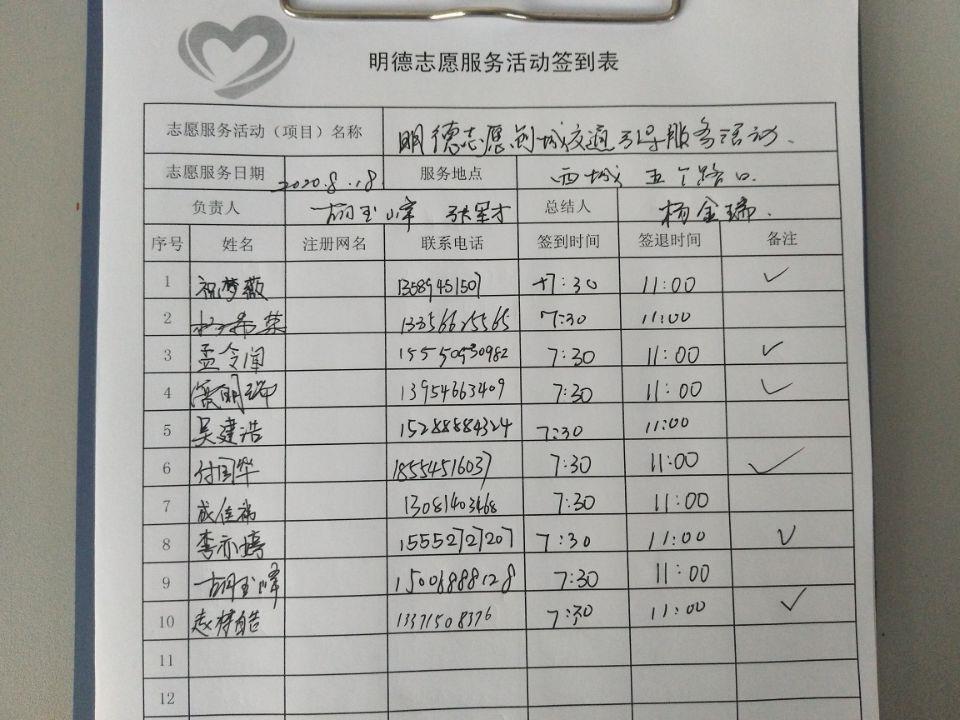 明德志愿服务活动签到表
志愿服务活动（项目）名称 明德志愿创城交通引导服务活动.
志愿服务日期 2020.8.18 服务地点 西城 五个路口
负责人 胡玉峰 张军才 总结人 杨金瑞.
序号 姓名 注册网名 联系电话 签到时间 签退时间 备注
1 祝梦薇 13589451507 7:30 11:00 ✓
2 13356625565 7:30 11:00
3 孟令闻 15550930982 7:30 11:00 ✓
4 13954663409 7:30 11:00 ✓
5 吴建浩 15288884324 7:30 11:00
6 付国华 18554516037 7:30 11:00 ✓
7 成佳福 13081403468 7:30 11:00
8 李亦婷 15552727207 7:30 11:00 ✓
9 胡玉峰 15006888128 7:30 11:00
10 13371508376 7:30 11:00 ✓
11
12